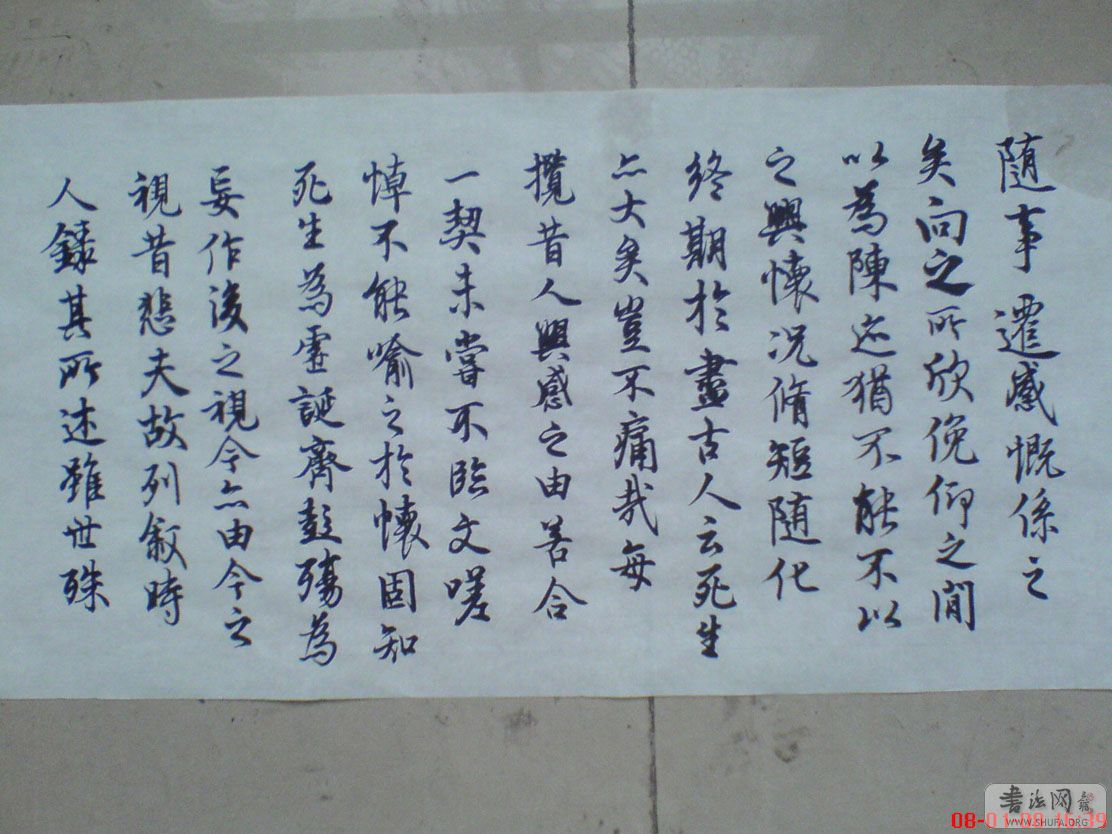 随事遷感慨係之
矣向之所欣俛仰之間
以為陳迹猶不能不以
之興懷况脩短随化
終期於盡古人云死生
亦大矣豈不痛哉每
攬昔人興感之由若合
一契未嘗不臨文嗟
悼不能喻之於懷固知
死生為虛誕齊彭殤為
妄作後之視今亦由今之
視昔悲夫故列叙時
人錄其所述雖世殊
書法网
WWW.SHUFA.ORG